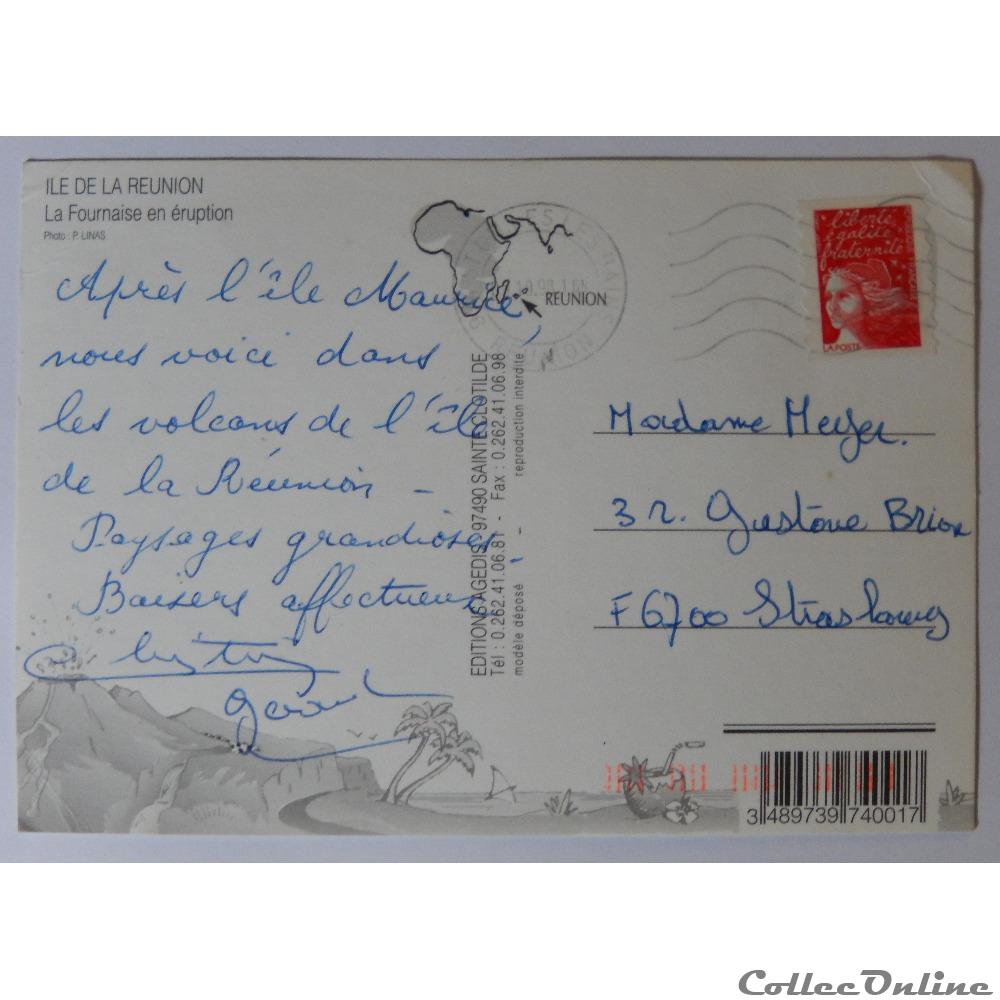 ILE DE LA REUNION
La Fournaise en éruption
Photo : P. LINAS
Après l'île Maurice,
nous voici dans
les volcans de l'île
de la Réunion -
Paysages grandioses
Baisers affectueux
REUNION
EDITIONS AGEDIS - 97490 SAINTE CLOTILDE
Tél : 0.262.41.06.81 - Fax : 0.262.41.06.98
modèle déposé - reproduction interdite
liberté
égalité
fraternité
LA POSTE
Madame Meyer.
3 r. Gustave Brion
F 6700 Strasbourg
3 489739 740017
CollecOnline